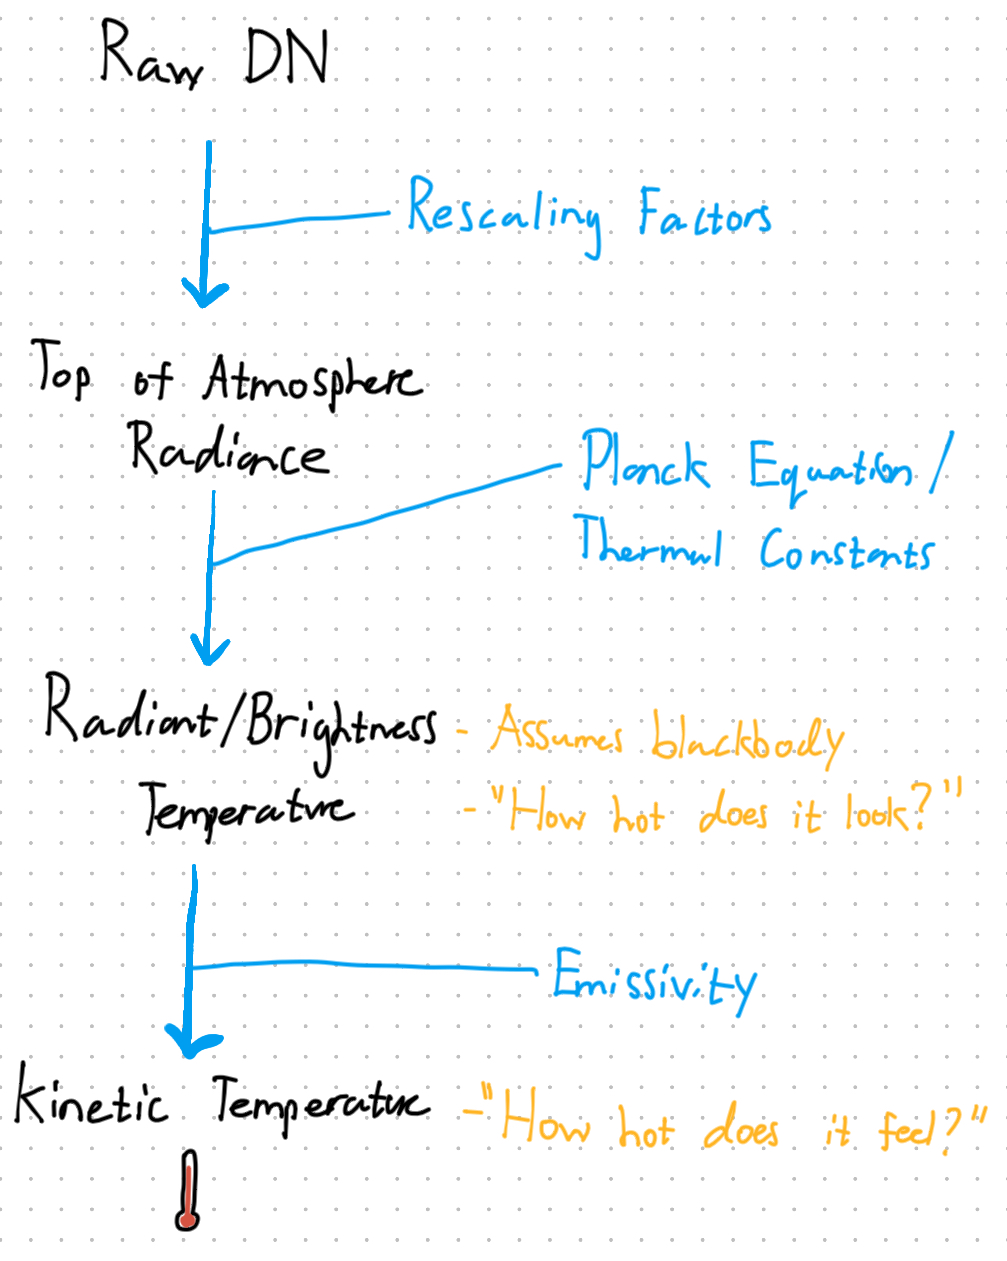 Raw DN
Rescaling Factors
Top of Atmosphere
Radiance
Planck Equation/
Thermal Constants
Radiant/Brightness - Assumes blackbody
Temperature - "How hot does it look?"
Emissivity
Kinetic Temperature - "How hot does it feel?"